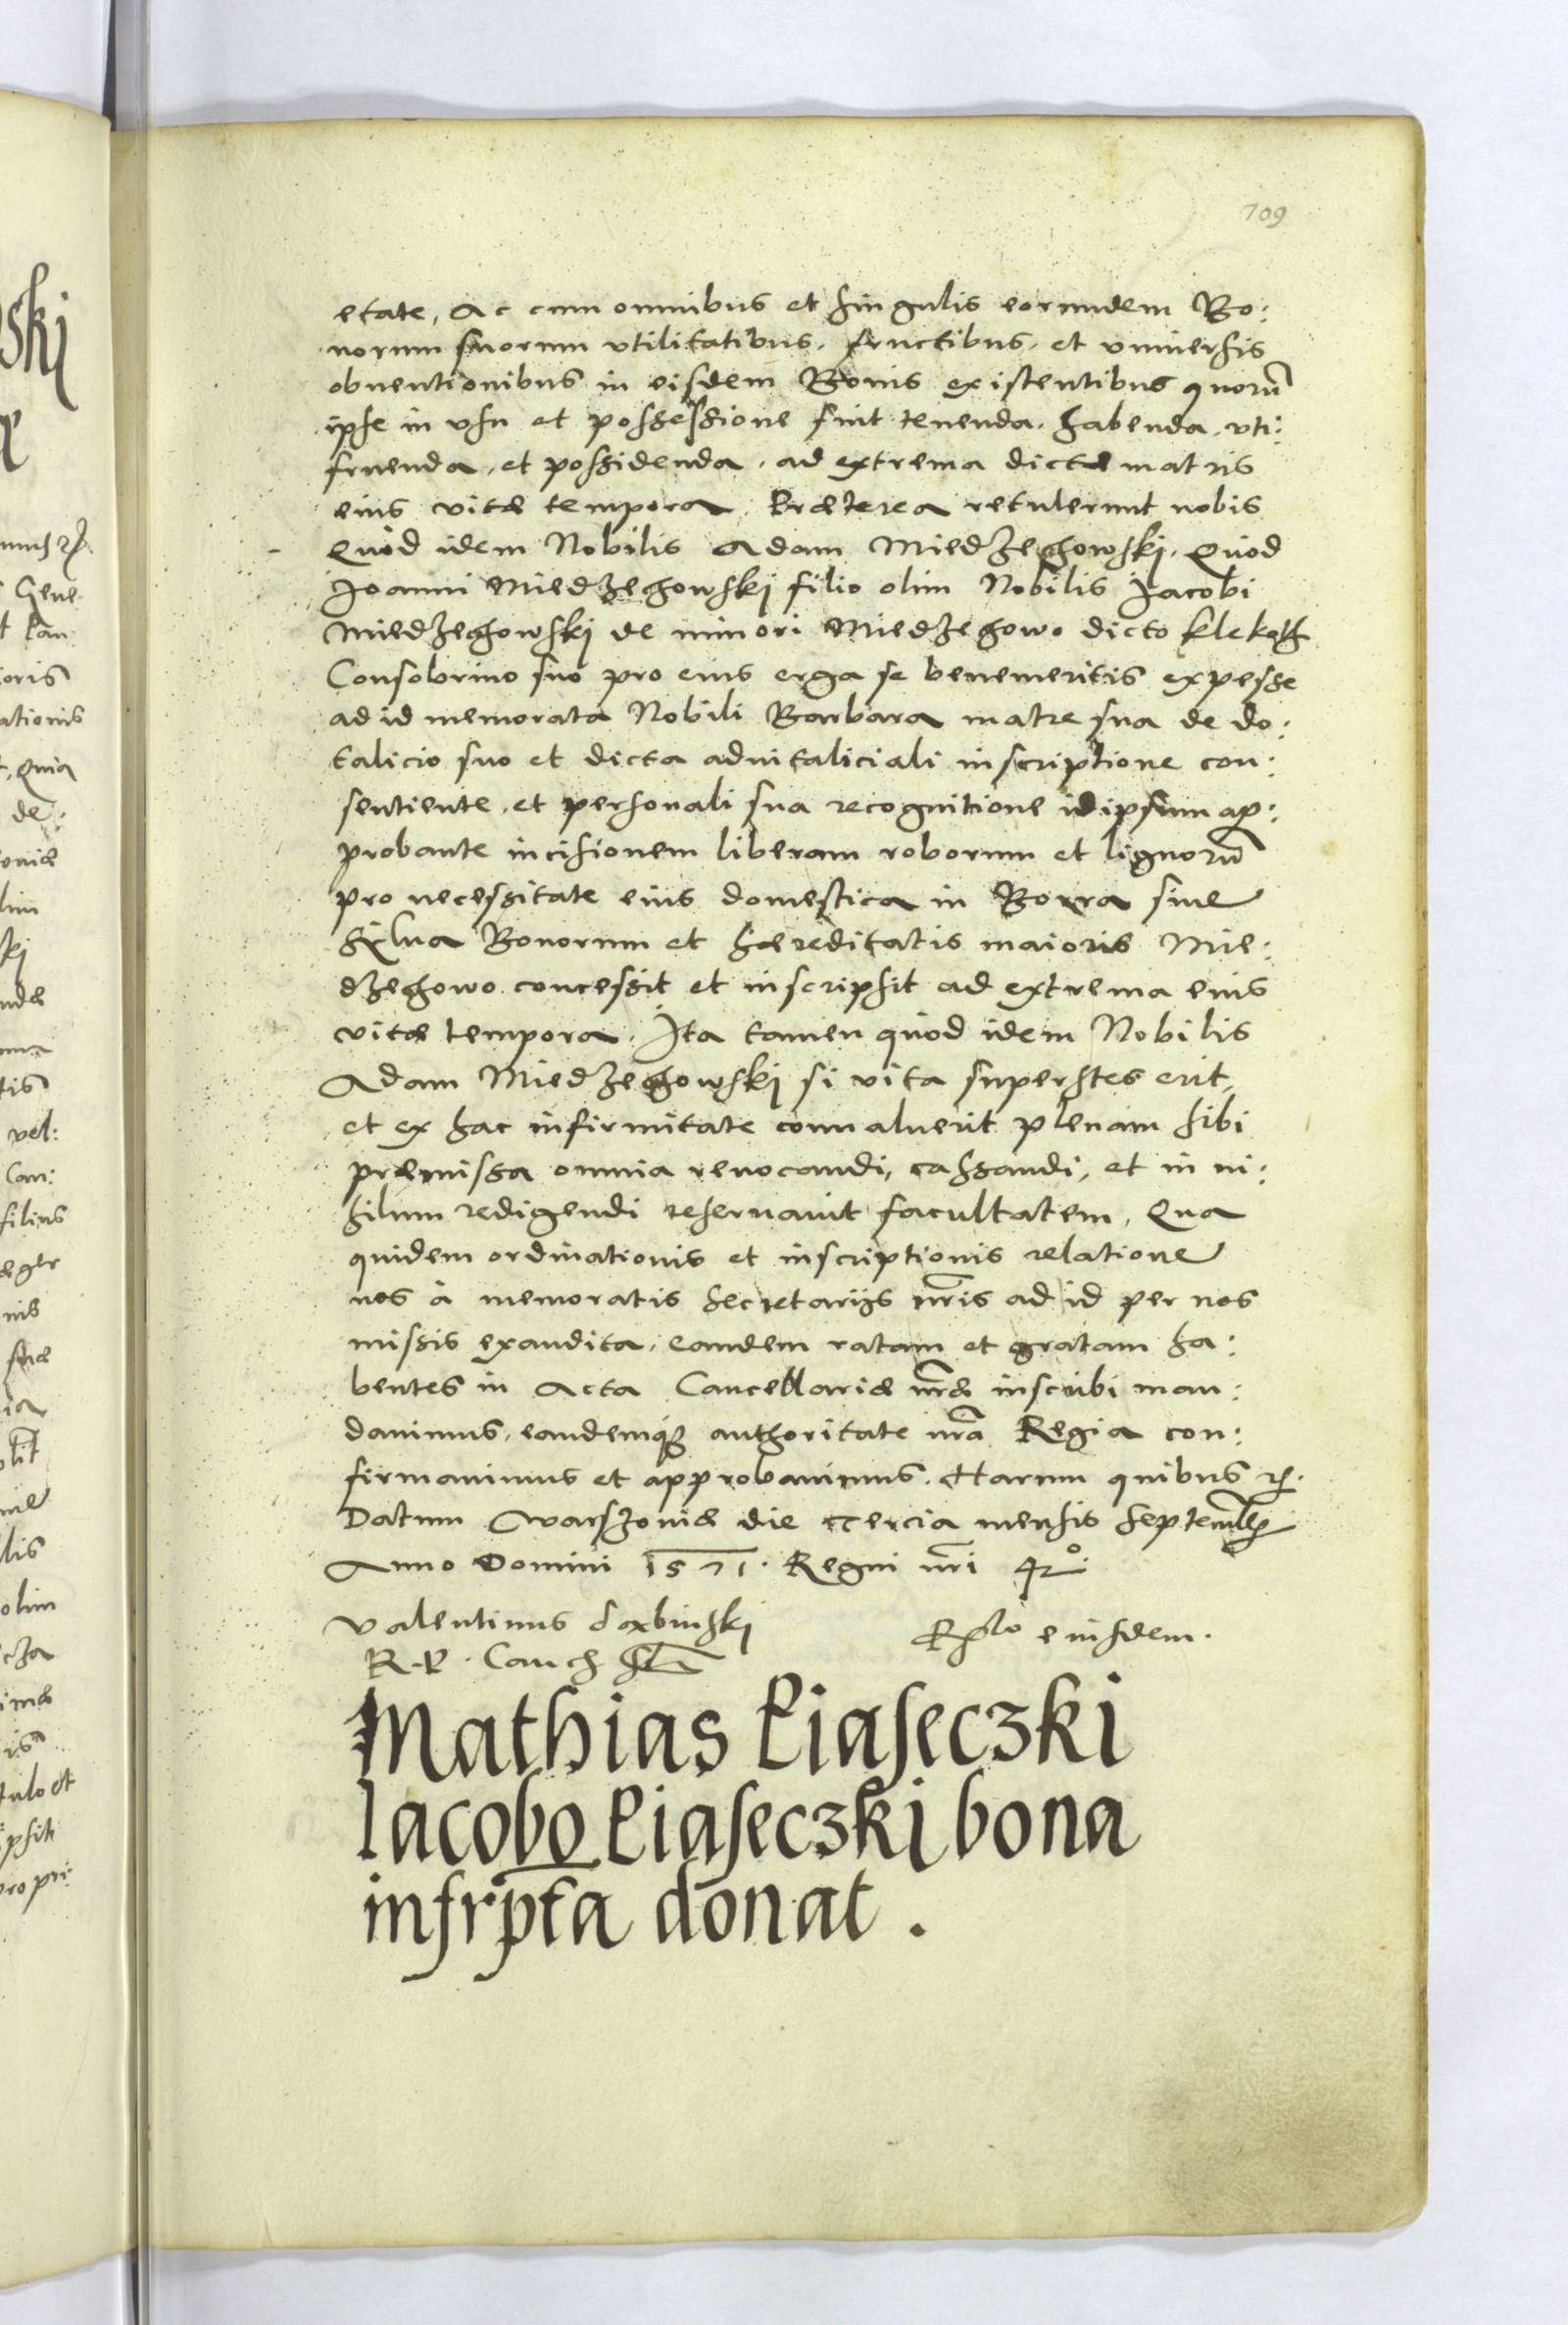 709
etate, Ac cum omnibus et singulis eorumdem Bo:
norum suorum vtilitatibus, fructibus, et vniuersis
obuentionibus in eisdem Bonis existentibus quorũ
ipse in vsu et possessione fuit tenenda, habenda, vti:
fruenda, et possidenda, ad extrema dictæ matris
eius vitæ tempora. Præterea retulerunt nobis
Quòd idem Nobilis Adam Miedzeghowski, Quòd
Joanni Miedzeghowski filio olim Nobilis Jacobi
Miedzeghowski de minori Miedzeghowo dicto
Consobrino suo pro eius erga se benemeritis expesse
ad id memorata Nobili Barbara matre sua de do:
talicio suo et dicta aduitaliciali inscriptione con:
sentiente, et personali sua recognitione idipsum ap:
probante incisionem liberam roborum et lignorũ
pro necessitate eius domestica in Borra siue
Sylua Bonorum et hæreditatis maioris Mie:
dzeghowo concessit et inscripsit ad extrema eius
vitæ tempora. Ita tamen quòd idem Nobilis
Adam Miedzeghowski si vita superstes erit,
et ex hac infirmitate conualuerit plenam sibi
præmissa omnia reuocandi, cassandi, et in ni:
hilum redigendi reseruauit facultatem, Qua
quidem ordinationis et inscriptionis relatione
nos à memoratis Secretarijs nr̃is ad id per nos
missis exaudita, eandem ratam et gratam ha:
bentes in Acta Cancellariæ nr̃æ inscribi man:
dauimus, eandemq; authoritate nr̃a Regia con:
firmauimus et approbauimus. Harum quibus
Datum Warszouiæ die tercia mensis Septembr
Anno Domini 1571. Regni nr̃i 42°.
Valentinus Dąbinski
R. P. Canc
Rlo eiusdem.
Mathias Piaseczki
Iacobo Piaseczki bona
infrpta donat.